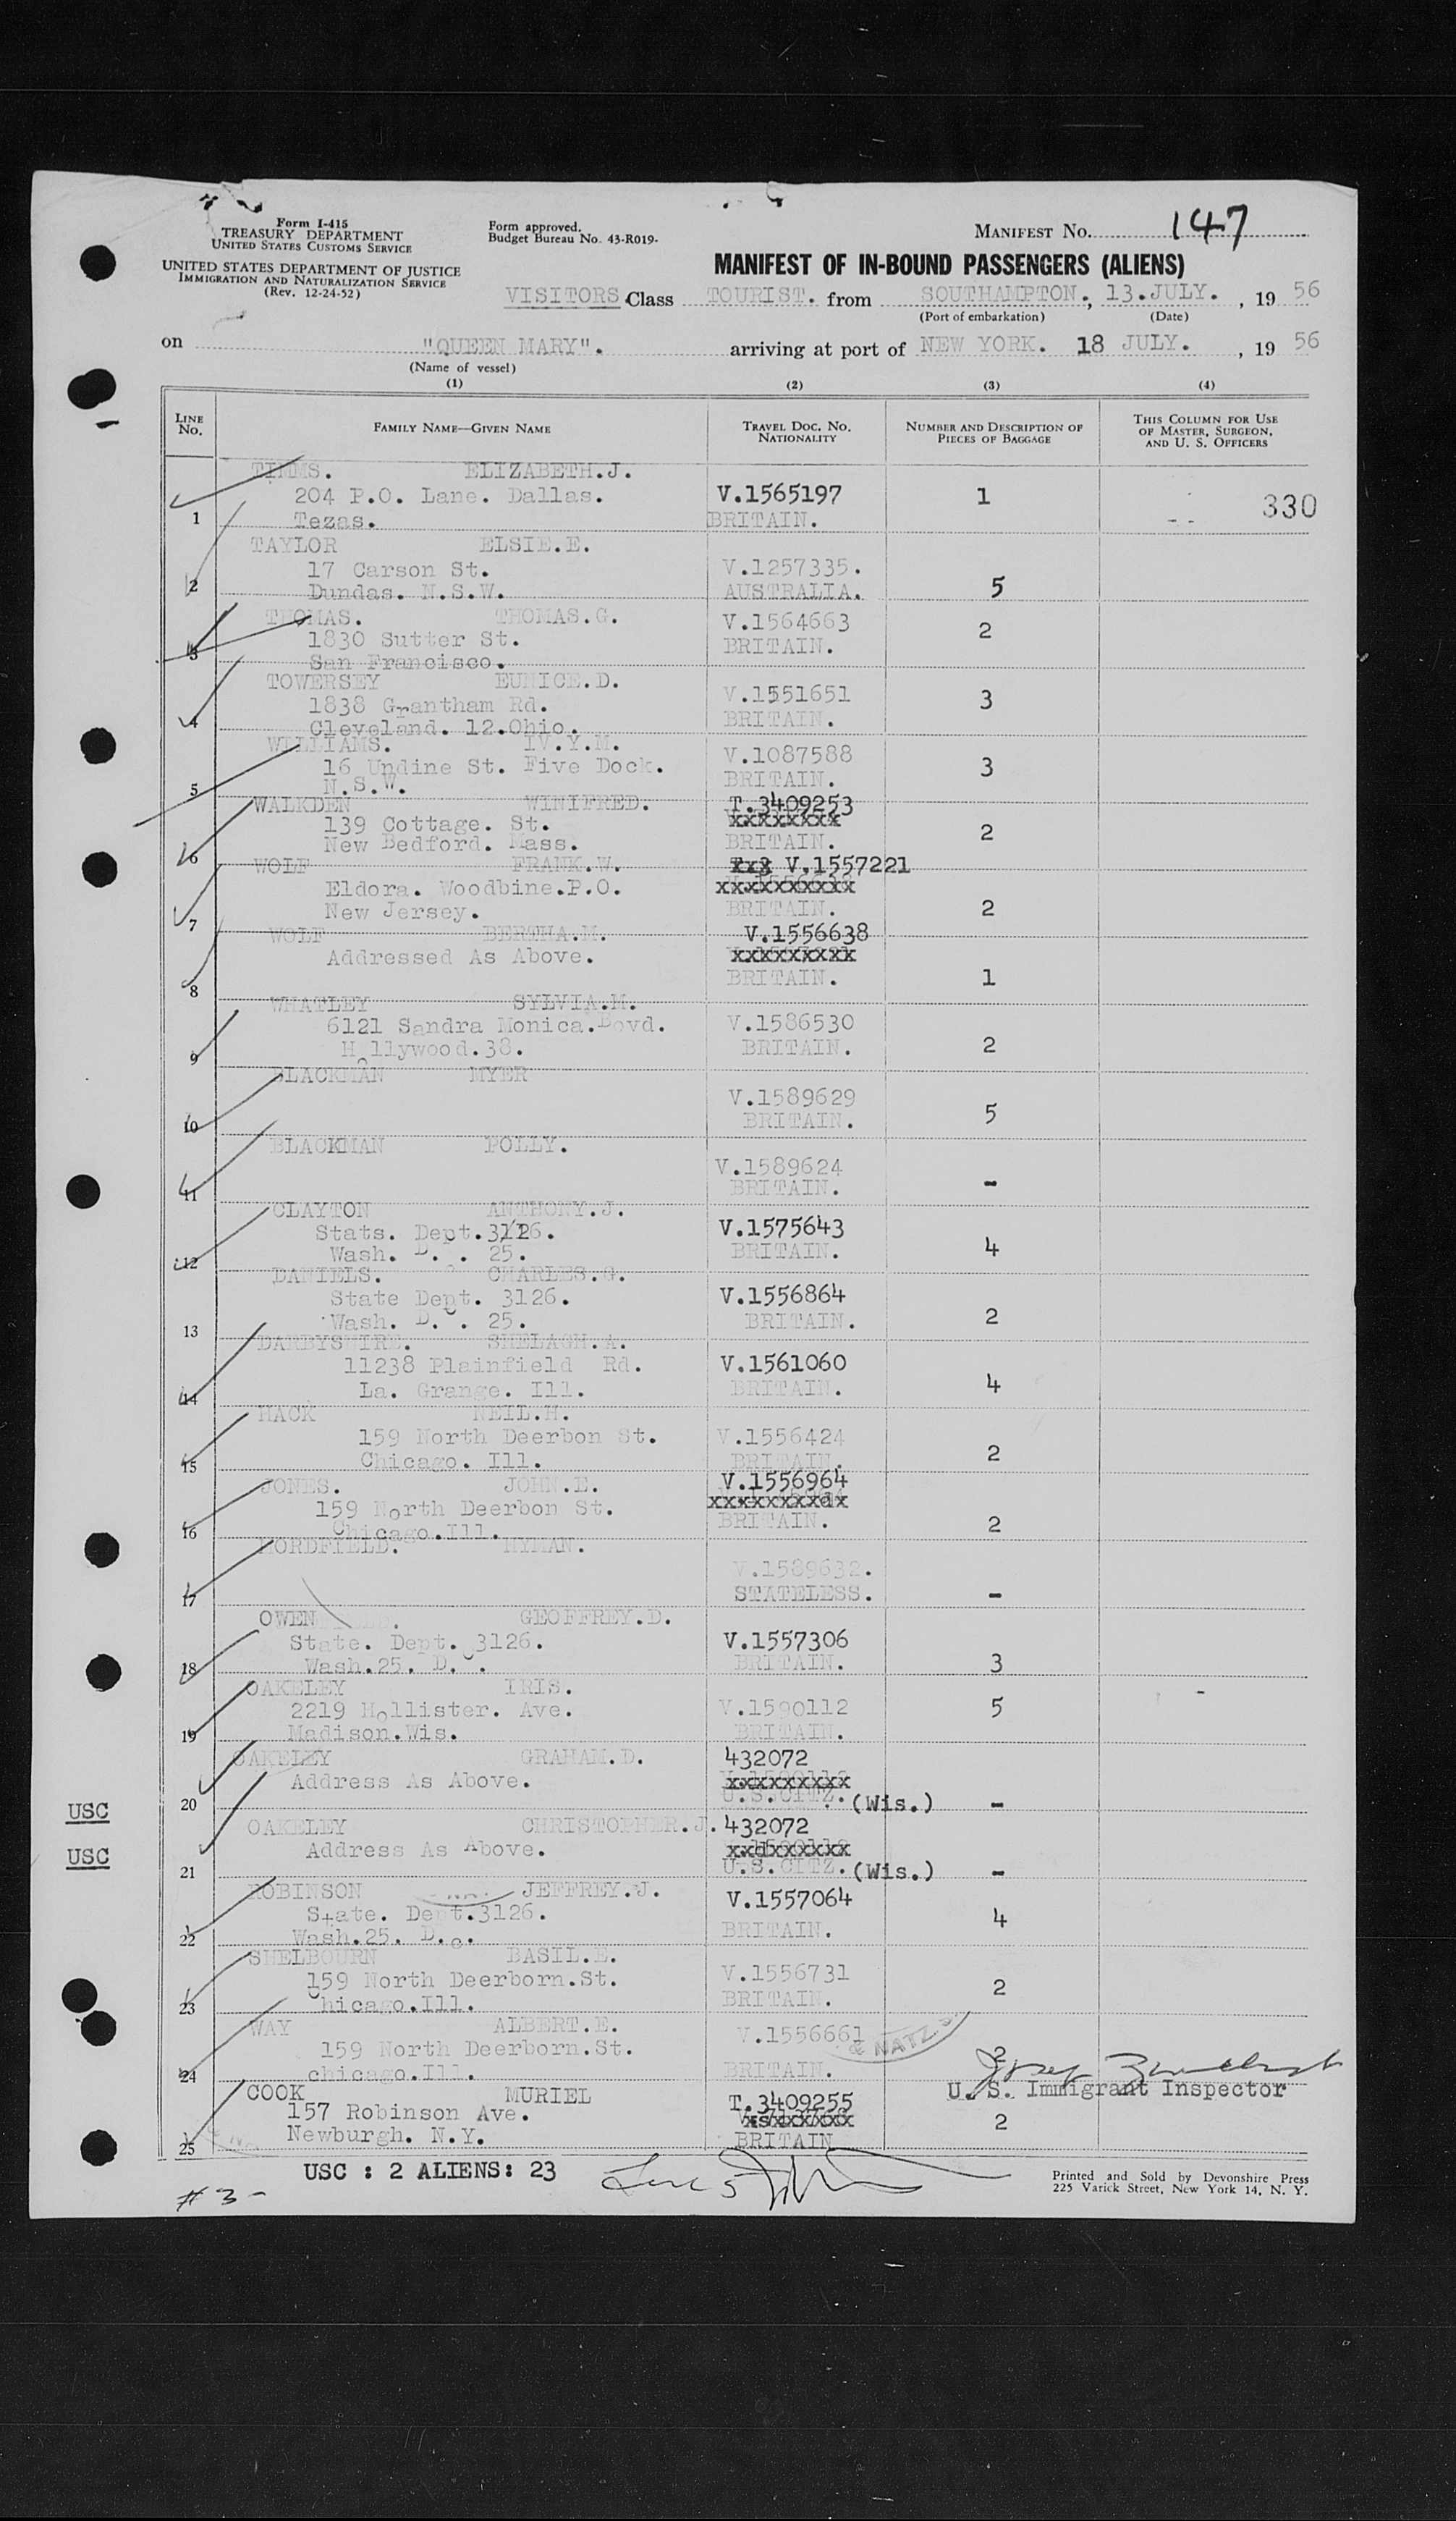 Form I-415
TREASURY DEPARTMENT
UNITED STATES CUSTOMS SERVICE
UNITED STATES DEPARTMENT OF JUSTICE
IMMIGRATION AND NATURALIZATION SERVICE
(Rev. 12-24-52)
Form approved.
Budget Bureau No. 43-R019-
MANIFEST No. 147
MANIFEST OF IN-BOUND PASSENGERS (ALIENS)
VISITORS Class TOURIST. from SOUTHAMPTON., 13.JULY., 19 56
(Port of embarkation) (Date)
on "QUEEN MARY". arriving at port of NEW YORK. 18 JULY., 19 56
(Name of vessel)
(1) (2) (3) (4)
LINE No. FAMILY NAME—GIVEN NAME TRAVEL DOC. NO. NATIONALITY NUMBER AND DESCRIPTION OF PIECES OF BAGGAGE THIS COLUMN FOR USE OF MASTER, SURGEON, AND U. S. OFFICERS
TIMMS. ELIZABETH.J.
204 P.O. Lane. Dallas. V.1565197 1 330
1 Tezas. BRITAIN.
TAYLOR ELSIE.E.
17 Carson St. V.1257335.
2 Dundas. N.S.W. AUSTRALIA. 5
THOMAS. THOMAS.G. V.1564663
1830 Sutter St. BRITAIN. 2
3 San Francisco.
TOWERSEY EUNICE.D. V.1551651
1838 Grantham Rd. BRITAIN. 3
4 Cleveland. 12.Ohio.
WILLIAMS. IV.Y.M. V.1087588
16 Undine St. Five Dock. BRITAIN. 3
5 N.S.W.
WALKDEN WINIFRED. T.3409253
139 Cottage. St. xxxxxxxx
6 New Bedford. Mass. BRITAIN. 2
WOLF FRANK.W. V.1557221
Eldora. Woodbine.P.O. xxxxxxxxxx
7 New Jersey. BRITAIN. 2
WOLF BERTHA.M. V.1556638
Addressed As Above. xxxxxxxxx
8 BRITAIN. 1
WHATLEY SYLVIA.M.
6121 Sandra Monica.Bovd. V.1586530
9 Hollywood.38. BRITAIN. 2
BLACKMAN MYER
V.1589629
10 BRITAIN. 5
BLACKMAN POLLY.
V.1589624
11 BRITAIN. -
CLAYTON ANTHONY.J.
Stats. Dept. V.1575643
12 Wash. D. . 25. BRITAIN. 4
DANIELS. CHARLES.G.
State Dept. 3126. V.1556864
13 Wash. D.C. 25. BRITAIN. 2
DARBYSHIRE. SHELAGH.A.
11238 Plainfield Rd. V.1561060
14 La. Grange. Ill. BRITAIN. 4
MACK NEIL.H.
159 North Deerbon St. V.1556424
15 Chicago. Ill. BRITAIN. 2
JONES. JOHN.E. V.1556964
159 North Deerbon St. xxxxxxxxdx
16 Chicago.Ill. BRITAIN. 2
NORDFIELD. HYMAN.
V.1589632.
17 STATELESS. -
OWEN GEOFFREY.D.
State. Dept. 3126. V.1557306
18 Wash.25. D.C. BRITAIN. 3
OAKELEY IRIS.
2219 Hollister. Ave. V.1590112 5
19 Madison.Wis. BRITAIN.
OAKELEY GRAHAM.D. 432072
Address As Above. xxxxxxxxx
USC 20 U.S.CITZ.(Wis.) -
OAKELEY CHRISTOPHER.J. 432072
USC Address As Above. xxdxxxxxx
21 U.S.CITZ.(Wis.) -
ROBINSON JEFFREY.J. V.1557064
State. Dept.3126. 4
22 Wash.25. D.c. BRITAIN.
SHELBOURN BASIL.E.
159 North Deerborn.St. V.1556731
23 Chicago.Ill. BRITAIN. 2
WAY ALBERT.E. V.1556661
159 North Deerborn.St. & NATZ. 2
24 chicago.Ill. BRITAIN.
U. S. Immigrant Inspector
COOK MURIEL T.3409255
157 Robinson Ave. 2
25 Newburgh. N.Y. BRITAIN
USC : 2 ALIENS: 23
# 3 -
Printed and Sold by Devonshire Press
225 Varick Street, New York 14, N. Y.